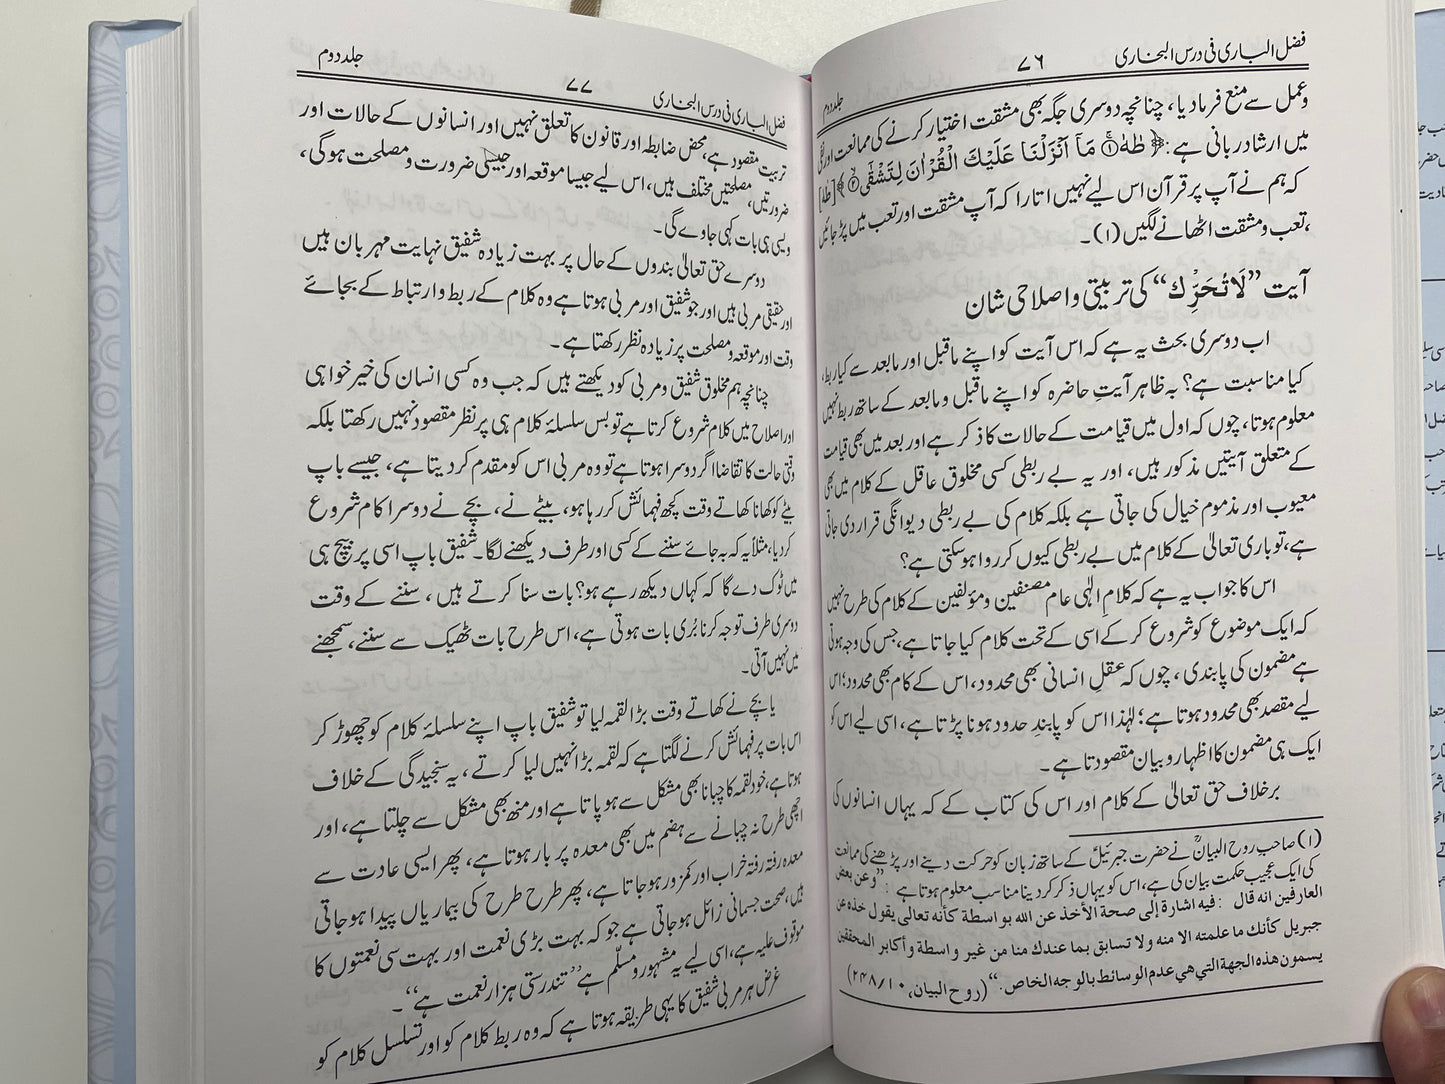 فضل الباری فی درس البخاری
۷۶
جلد دوم
وعمل سے منع فرمادیا، چنانچہ دوسری جگہ بھی مشقت اختیار کرنے کی ممانعت اور نفی
میں ارشاد ربانی ہے: ﴿طٰهٰ ① مَآ اَنْزَلْنَا عَلَيْكَ الْقُرْاٰنَ لِتَشْقٰٓى ②﴾ [طہٰ]
کہ ہم نے آپ پر قرآن اس لیے نہیں اتارا کہ آپ مشقت اور تعب میں پڑ جائیں
،تعب و مشقت اٹھانے لگیں (۱)۔
آیت ”لَاتُحَرِّكْ“ کی تربیتی واصلاحی شان
اب دوسری بحث یہ ہے کہ اس آیت کو اپنے ماقبل اور مابعد سے کیا ربط،
کیا مناسبت ہے؟ بہ ظاہر آیتِ حاضرہ کو اپنے ماقبل ومابعد کے ساتھ ربط نہیں
معلوم ہوتا، چوں کہ اول میں قیامت کے حالات کا ذکر ہے اور بعد میں بھی قیامت
کے متعلق آیتیں مذکور ہیں، اور یہ بے ربطی کسی مخلوق عاقل کے کلام میں بھی
معیوب اور مذموم خیال کی جاتی ہے بلکہ کلام کی بے ربطی دیوانگی قرار دی جاتی
ہے، تو باری تعالیٰ کے کلام میں بے ربطی کیوں کر روا ہوسکتی ہے؟
اس کا جواب یہ ہے کہ کلامِ الٰہی عام مصنفین ومؤلفین کے کلام کی طرح نہیں
کہ ایک موضوع کو شروع کر کے اسی کے تحت کلام کیا جاتا ہے، جس کی وجہ ہوتی
ہے مضمون کی پابندی، چوں کہ عقلِ انسانی بھی محدود، اس کے کام بھی محدود؛ اس
لیے مقصد بھی محدود ہوتا ہے؛ لہٰذا اس کو پابندِ حدود ہونا پڑتا ہے، اسی لیے اس کو
ایک ہی مضمون کا اظہار وبیان مقصود تا ہے۔
برخلاف حق تعالیٰ کے کلام اور اس کی کتاب کے کہ یہاں انسانوں کی
(۱) صاحبِ روح البیانؒ نے حضرت جبرئیلؑ کے ساتھ زبان کو حرکت دینے اور پڑھنے کی ممانعت
کی ایک عجیب حکمت بیان کی ہے، اس کو یہاں ذکر کر دینا مناسب معلوم ہوتا ہے: ”وعن بعض
العارفین انه قال: فیه اشارة إلى صحة الأخذ عن الله بواسطة كأنه تعالى يقول خذه عن
جبريل كأنك ما علمته الا منه ولا تسابق بما عندك منا من غير واسطة وأكابر المحققين
يسمون هذه الجهة التي هي عدم الوسائط بالوجه الخاص.“ (روح البیان، ۲۴۸/۱۰)
فضل الباری فی درس البخاری
۷۷
جلد دوم
تربیت مقصود ہے، محض ضابطہ اور قانون کا تعلق نہیں اور انسانوں کے حالات اور
ضرورتیں، مصلحتیں مختلف ہیں، اس لیے جیسا موقعہ اور جیسی ضرورت و مصلحت ہوگی،
ویسی ہی بات کہی جاوے گی۔
دوسرے حق تعالیٰ بندوں کے حال پر بہت زیادہ شفیق نہایت مہربان ہیں
اور حقیقی مربی ہیں اور جو شفیق اور مربی ہوتا ہے وہ کلام کے ربط وارتباط کے بجائے
وقت اور موقعہ و مصلحت پر زیادہ نظر رکھتا ہے۔
چنانچہ ہم مخلوق شفیق ومربی کو دیکھتے ہیں کہ جب وہ کسی انسان کی خیر خواہی
اور اصلاح میں کلام شروع کرتا ہے تو بس سلسلۂ کلام ہی پر نظر مقصود نہیں رکھتا بلکہ
وقتی حالت کا تقاضا اگر دوسرا ہوتا ہے تو وہ مربی اس کو مقدم کر دیتا ہے، جیسے باپ
بیٹے کو کھانا کھاتے وقت کچھ فہمائش کر رہا ہو، بیٹے نے، بچے نے دوسرا کام شروع
کر دیا، مثلاً یہ کہ بہ جائے سننے کے کسی اور طرف دیکھنے لگا۔ شفیق باپ اسی پر بیچ ہی
میں ٹوک دے گا کہ کہاں دیکھ رہے ہو؟ بات سنا کرتے ہیں، سننے کے وقت
دوسری طرف توجہ کرنا بُری بات ہوتی ہے، اس طرح بات ٹھیک سے سننے، سمجھنے
میں نہیں آتی۔
یا بچے نے کھاتے وقت بڑا لقمہ لیا تو شفیق باپ اپنے سلسلۂ کلام کو چھوڑ کر
اس بات پر فہمائش کرنے لگتا ہے کہ لقمہ بڑا نہیں لیا کرتے، یہ سنجیدگی کے خلاف
ہوتا ہے، خود لقمہ کا چبانا بھی مشکل سے ہو پاتا ہے اور منھ بھی مشکل سے چلتا ہے، اور
اچھی طرح نہ چبانے سے ہضم میں بھی معدہ پر بار ہوتا ہے، پھر ایسی عادت سے
معدہ رفتہ رفتہ خراب اور کمزور ہوجاتا ہے، پھر طرح طرح کی بیماریاں پیدا ہو جاتی
ہیں، صحت جسمانی زائل ہوجاتی ہے جو کہ بہت بڑی نعمت اور بہت سی نعمتوں کا
موقوف علیہ ہے، اسی لیے یہ مشہور ومسلّم ہے ”تندرستی ہزار نعمت ہے“۔
غرض ہر مربی شفیق کا یہی طریقہ ہوتا ہے کہ وہ ربط کلام کو اور تسلسل کلام کو